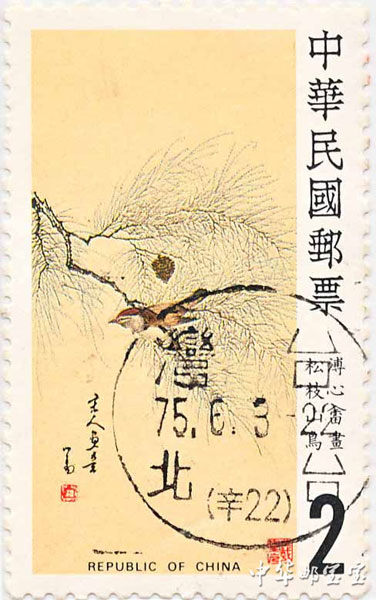 中華民國郵票
溥心畬畫
松枝山鳥
灣
75.6.3-22
北
(辛22)
2
REPUBLIC OF CHINA
中华邮宝宝